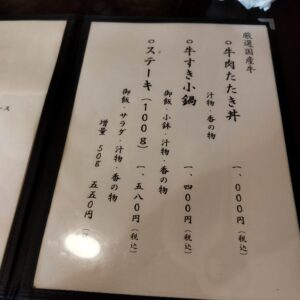 厳選国産牛
○牛肉たたき丼 一、〇〇〇円(税込)
汁物・香の物
○牛すき小鍋 一、四〇〇円(税込)
御飯・小鉢・汁物・香の物
○ステーキ(100g) 一、五八〇円(税込)
御飯・サラダ・汁物・香の物
増量 50g 五五〇円
ース